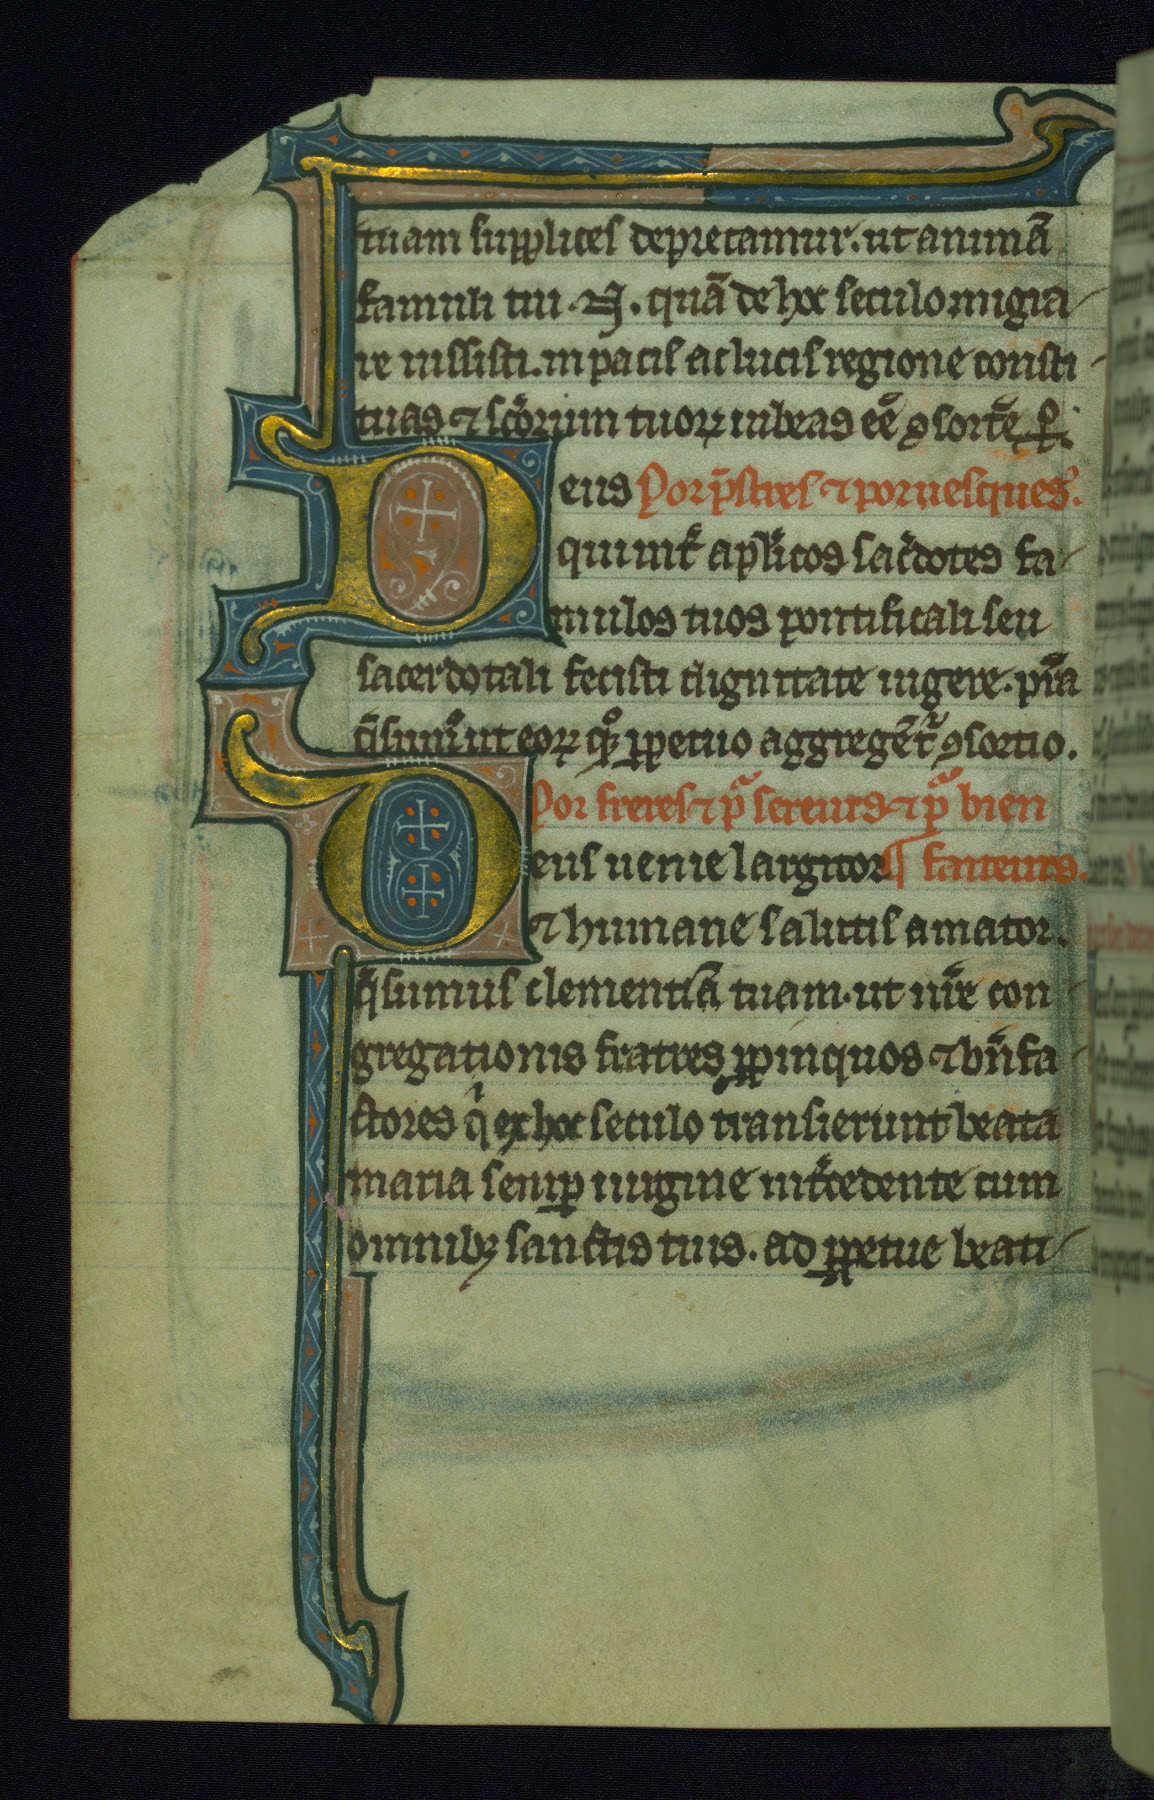 tuam supplices deprecamur. ut animā
famuli tui .N. quā de hoc seculo migra
re iussisti. in pacis ac lucis regione consti
tuas ⁊ scōrum tuoꝝ iubeas eē ꝯsortē. ꝑ.
eus Por p̄stres ⁊ por uesques.
qui int̄ apl'icos sac̄dotes fa
mulos tuos pontificali seu
sacerdotali fecisti dignitate uigere. p̄ra
q̄sum⁹ ut eoꝝ q̊ꝫ ꝑpetuo aggregēt̄ ꝯsortio.
Por freres ⁊ pᵃ sereurs ⁊ pᵃ bien
eus uenie largitor ¶ faiteurs.
⁊ humane salutis amator.
q̄sumus clementiā tuam. ut nr̄e con
gregationis fratres ꝓpinquos ⁊ bn̄fa
ctores qͥ ex hoc seculo transierunt beata
maria semꝑ uirgine int̄cedente cum
omnibꝫ sanctis tuis. ad ꝑpetue beati